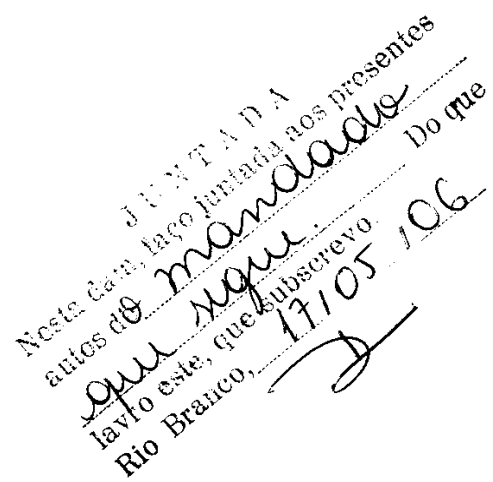 JUNTADA
Nesta data, faço juntada aos presentes
autos do mandado
que segue. Do que
lavro este, que subscrevo
Rio Branco, 17/05/06